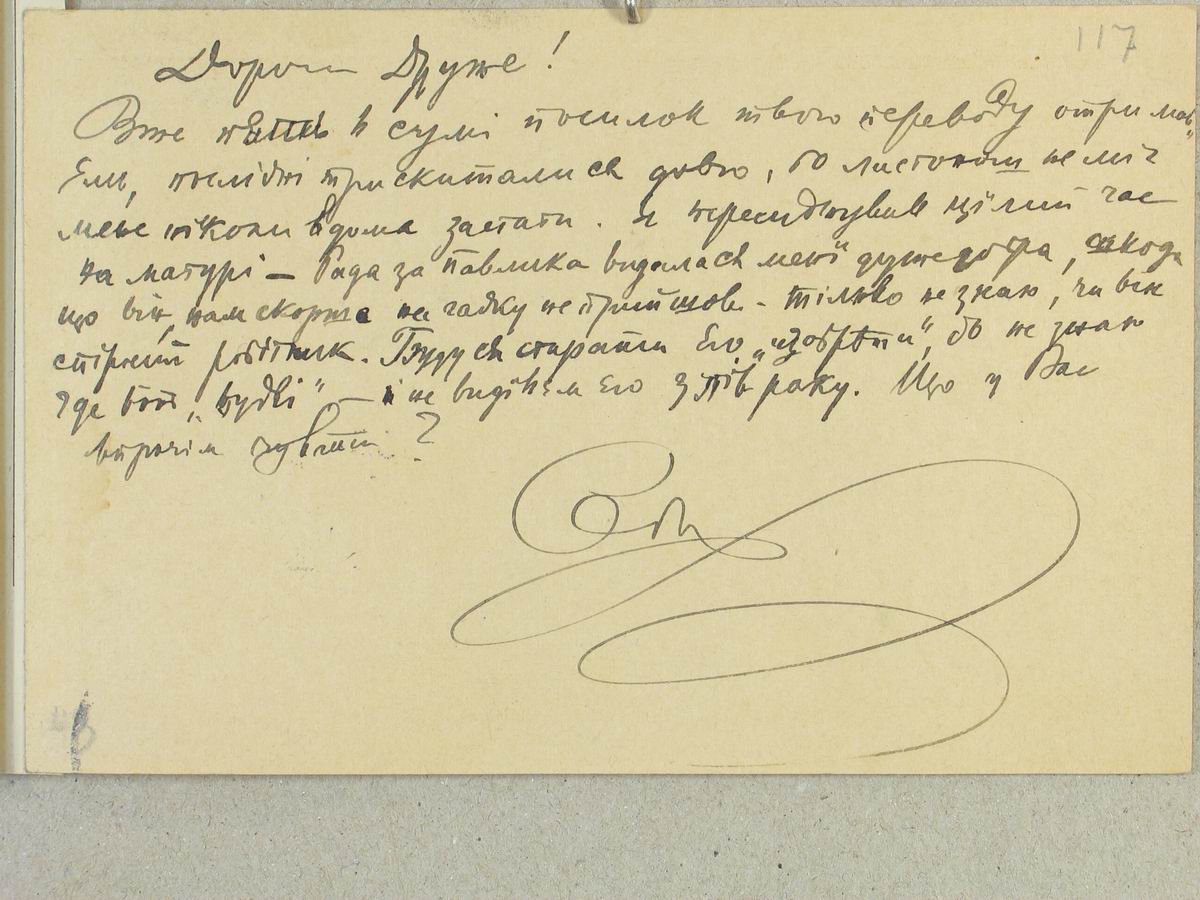 117
Дорогий Друже!
Вже пять в сумі посилок твого переводу отримав
ємь, послідні прискитались довго, бо листонош не міг
мене ніколи вдома застати. Я пересиджував цілий час
на матурі — Рада за Павлика видалась мені дуже добра, шкода
що він нам скорше на гадку не прийшов - тілько не знаю, чи він
спірний робітник. Буду ся старати Єго „изобрѣти", бо не знаю
где він „нудві" — і не видівєм Єго з пів року. Що у Вас
впрочім чувати?